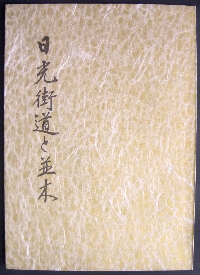 日光街道と並木